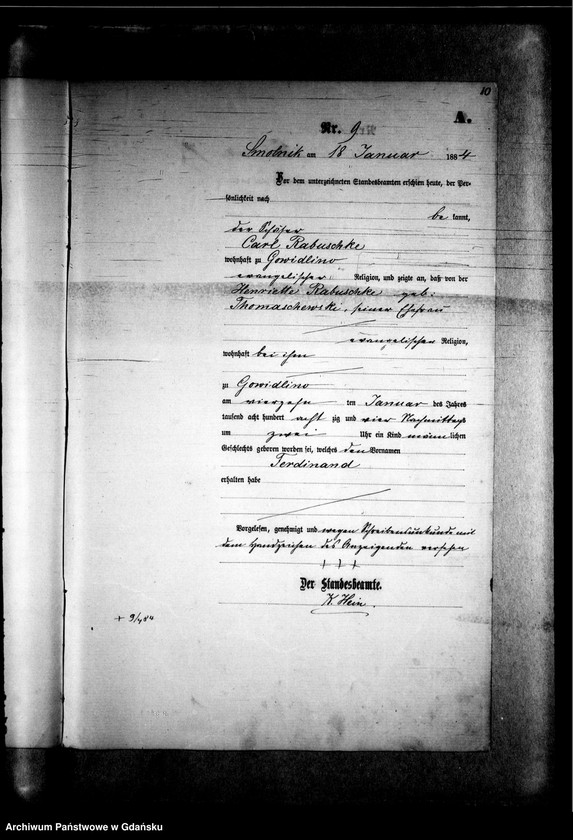 10
A.
Nr. 9
Smolnik am 18 Januar 1884
Vor dem unterzeichneten Standesbeamten erschien heute, der Per-
sönlichkeit nach
be kannt,
der
Carl Rabuschke
wohnhaft zu Gowidlino
evangelischer Religion, und zeigte an, daß von der
Henriette Rabuschke geb.
Thomaschewski, seiner Ehefrau
evangelischer Religion,
wohnhaft bei ihm
zu Gowidlino
am vierzehn ten Januar des Jahres
tausend acht hundert acht zig und vier Nachmittags
um zwei Uhr ein Kind männlichen
Geschlechts geboren worden sei, welches den Vornamen
Ferdinand
erhalten habe
Vorgelesen, genehmigt und wegen Schreibensunkunde mit
dem Handzeichen des Anzeigenden versehen
+ + +
Der Standesbeamte.
K. Hein.
Archiwum Państwowe w Gdańsku